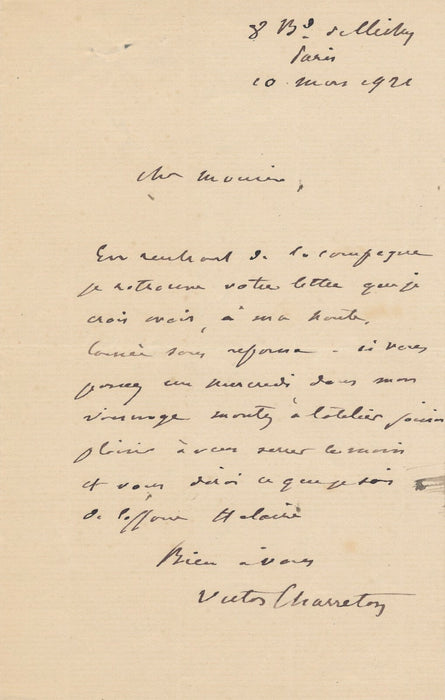 8 Bd de Clichy
Paris
10 mars 1921
Cher monsieur,
En rentrant de la campagne
je retrouve votre lettre que je
crois avoir, à ma honte,
laissée sans réponse - si vous
passez un mercredi dans mon
voisinage montez à l'atelier j'aurai
plaisir à vous serrer la main
et vous dirai ce que je sais
de l'affaire
Bien à vous
Victor Charreton